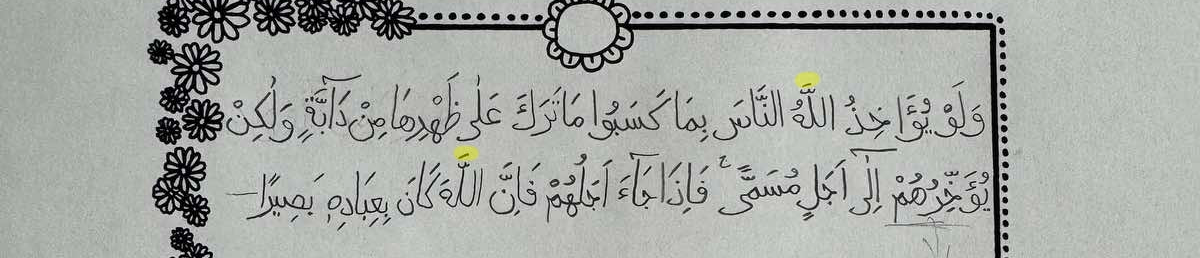 وَلَوْ يُؤَاخِذُ اللَّهُ النَّاسَ بِمَا كَسَبُوا مَا تَرَكَ عَلٰى ظَهْرِهَا مِنْ دَآبَّةٍ وَلٰكِنْ
يُؤَخِّرُهُمْ اِلٰٓى اَجَلٍ مُسَمًّى ۚ فَاِذَا جَآءَ اَجَلُهُمْ فَاِنَّ اللَّهَ كَانَ بِعِبَادِهٖ بَصِيرًا